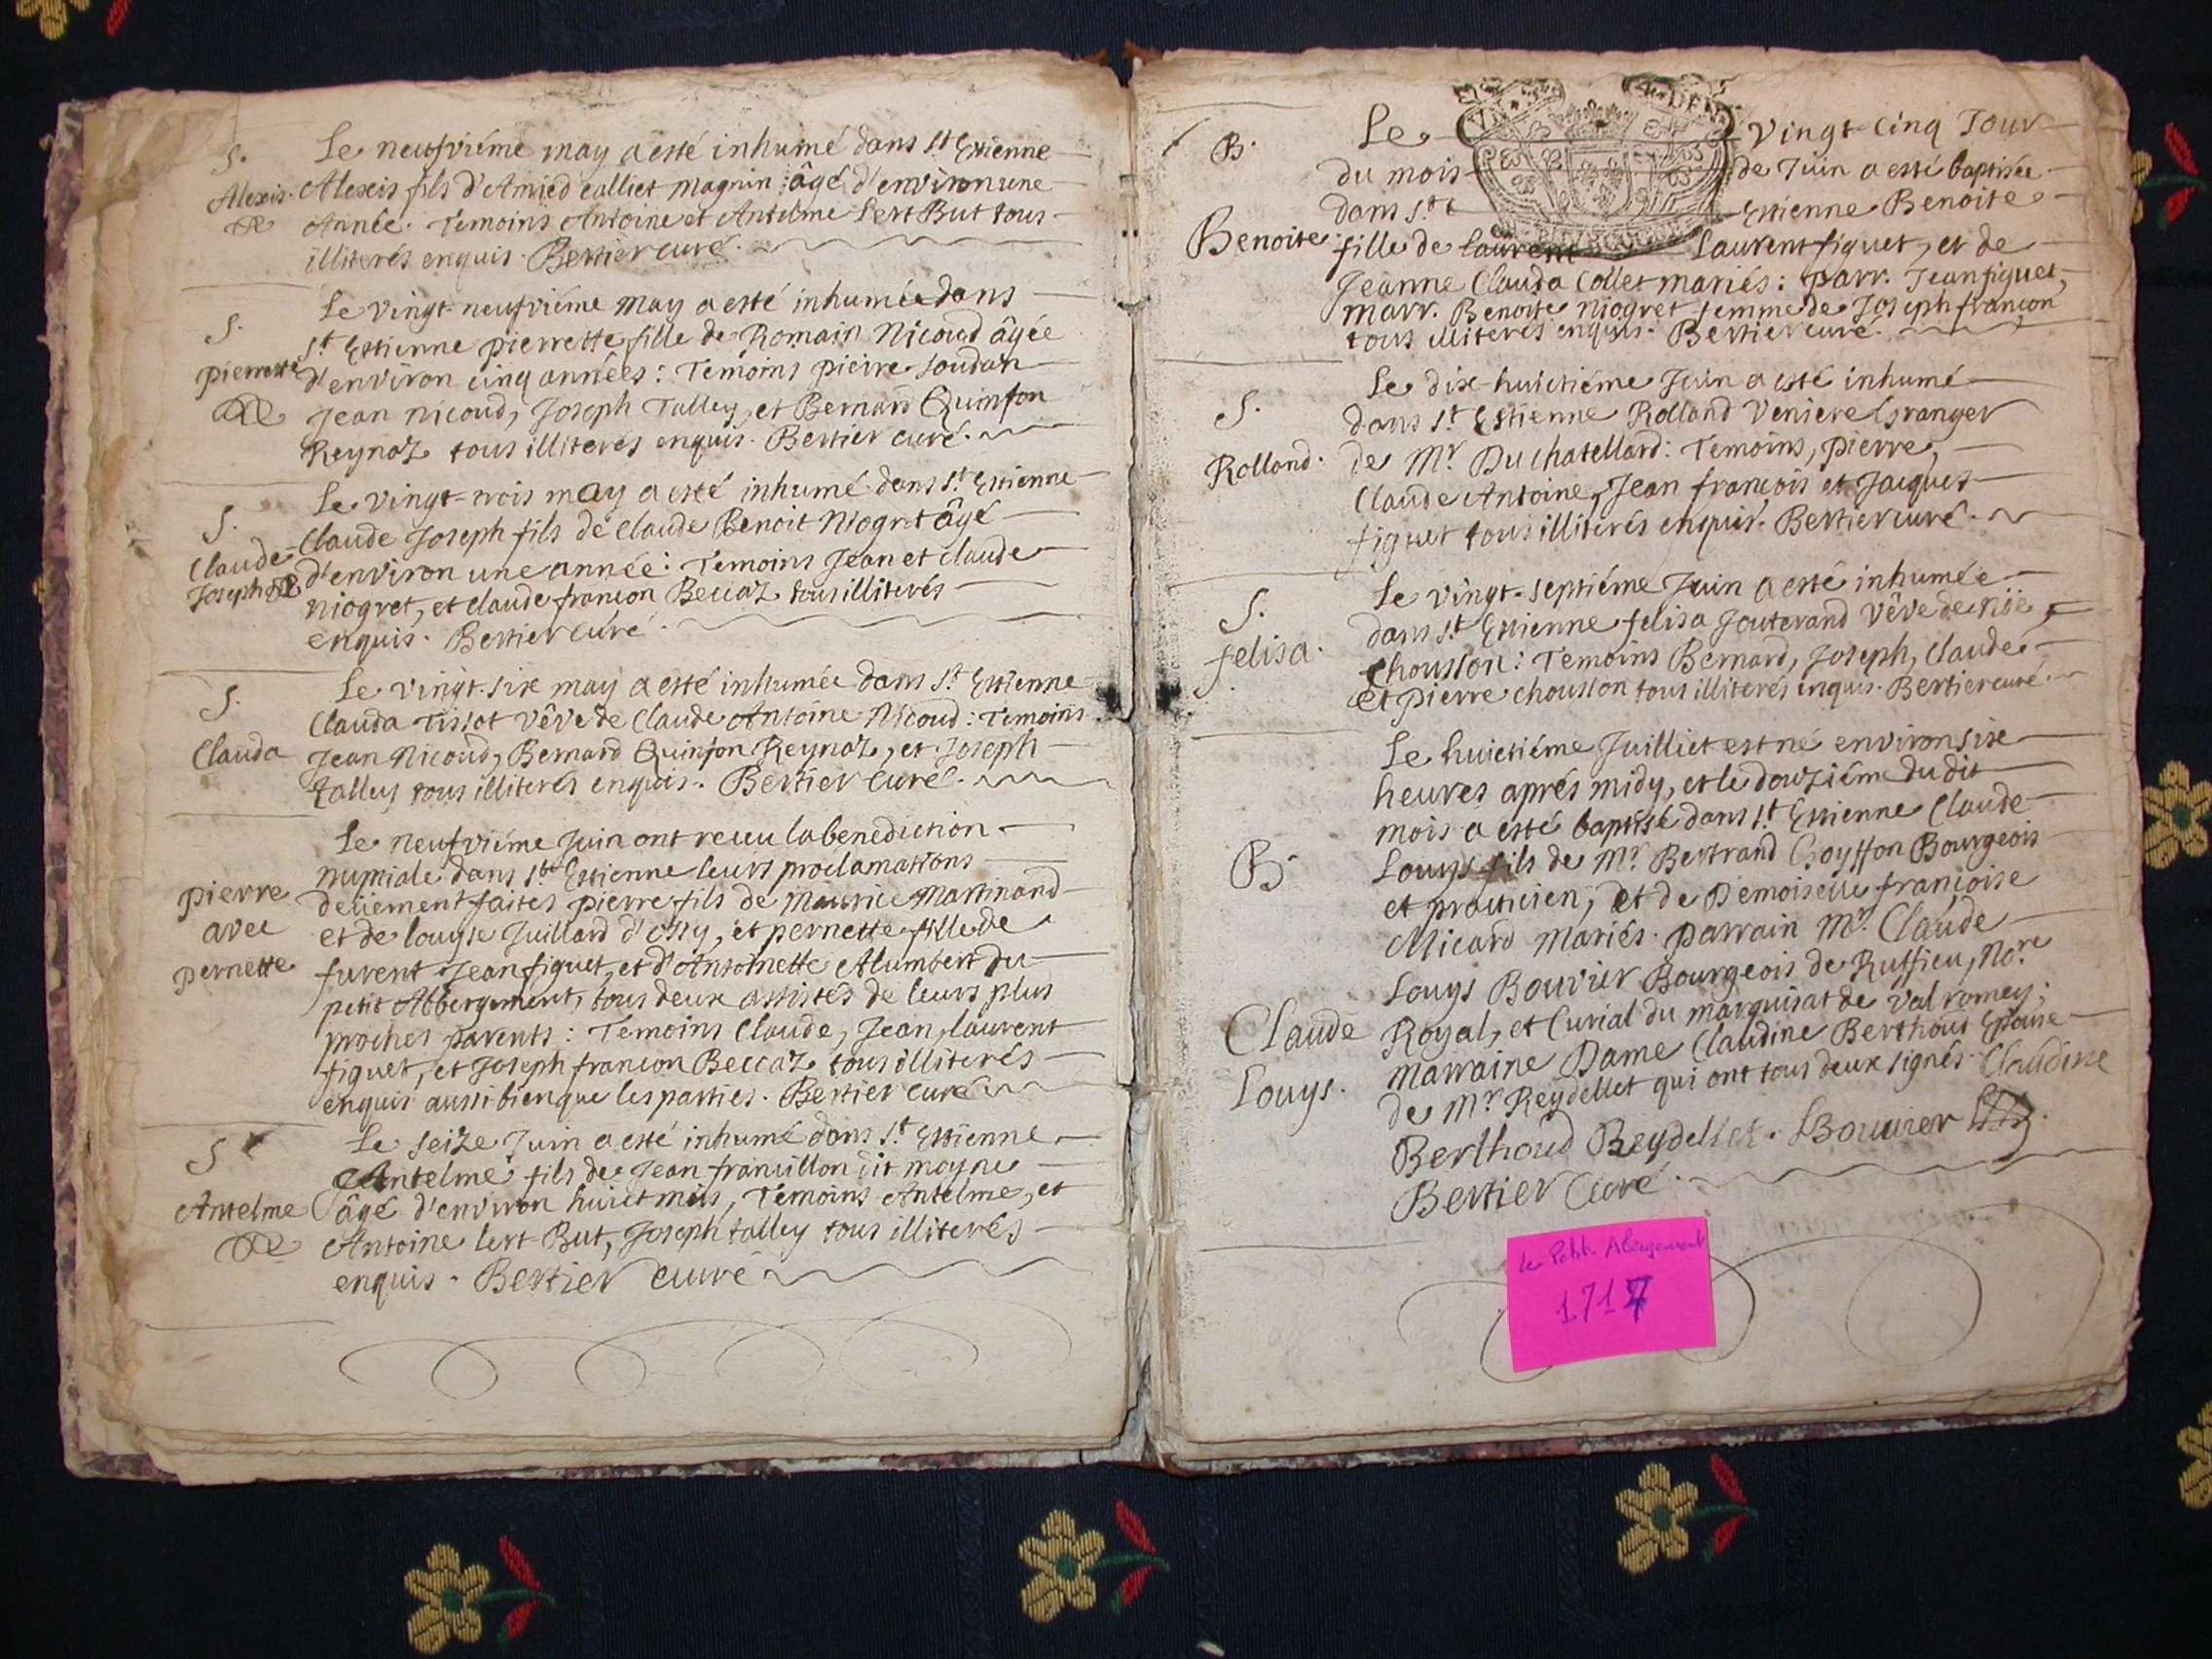 S.
Alexis.
Le neufviéme may a esté inhumé dans St Estienne
Alexis fils d'Amied calliet magnin âgé d'environ une
Année. Temoins Antoine et Antelme Lert But tous
illiterés enquis. Bertier curé.
S.
pierrette
Le vingt-neufviéme may a esté inhumée dans
St Estienne pierrette fille de Romain Nicoud âgée
d'environ cinq années: Temoins pierre Soudan
Jean nicoud, Joseph Talley, et Bernard Quinson
Reynaz tous illiterés enquis. Bertier curé.
S.
Claude
Joseph
Le vingt-trois may a esté inhumé dans St Estienne
Claude Joseph fils de Claude Benoit Niogret âgé
d'environ une année: Temoins Jean et claude
niogret, et claude françon Beccaz tous illiterés
enquis. Bertier curé.
S.
Clauda
Le vingt-six may a esté inhumée dans St Estienne
Clauda Tissot vêve de Claude Antoine Nicoud: Temoins
Jean Nicoud, Bernard Quinson Reynaz, et Joseph
talley tous illiterés enquis. Bertier curé.
pierre
avec
pernette
Le neufviéme Juin ont receu la benediction
nuptiale dans St Estienne leurs proclamations
deüement faites pierre fils de Maurice Martinand
et de louyse Juillard d'ossy, et pernette fille de
furent Jean figuet, et d'Antoinette Alumbert du
petit Abbergement, tous deux assistés de leurs plus
proches parents: Temoins Claude, Jean, laurent
figuet, et Joseph françon Beccaz tous illiterés
enquis aussi bien que les parties. Bertier curé
S
Antelme
Le seize Juin a esté inhumé dans St Estienne
Antelme fils de Jean francillon dit moyne
âgé d'environ huict mois, Temoins Antelme, et
Antoine lert But, Joseph talley tous illiterés
enquis. Bertier curé
B.
Benoite.
Le vingt-cinq Jour
du mois de Juin a esté baptisée
dans St Estienne Benoite
fille de laurent Laurent figuet, et de
Jeanne Clauda Collet mariés: parr. Jean figuet,
marr. Benoite niogret femme de Joseph françon
tous illiterés enquis. Bertier curé.
S.
Rolland.
Le dix-huictiéme Juin a esté inhumé
dans St Estienne Rolland Veniere Granger
de Mr Duchatellard: Temoins, pierre,
Claude Antoine, Jean françois et Jacques
figuet tous illiterés enquis. Bertier curé.
S.
felisa.
Le vingt-septiéme Juin a esté inhumée
dans St Estienne felisa Jouterand vêve de
chousson: Temoins Bernard, Joseph, Claude
et pierre chousson tous illiterés enquis. Bertier curé.
B
Claude
Louys.
Le huictiéme Juilliet est né environ six
heures aprés midy, et le douziéme du dit
mois a esté baptisé dans St Estienne Claude
Louys fils de Mr Bertrand Croysson Bourgeois
et praticien, et de Demoiselle françoise
Micard Mariés. parrain Mr Claude
Louys Bouvier Bourgeois de Ruffieu, Nore
Royal, et Curial du marquisat de Valromey;
marraine Dame Claudine Berthoud Epouse
de Mr Reydellet qui ont tous deux signés. Claudine
Berthoud Reydellet. LBouvier
Bertier Curé.
Le Petit Abergement
1717